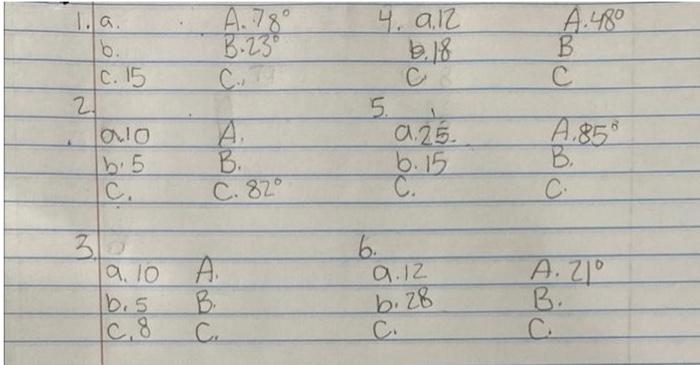 1. a. A. 78° 4. a. 12 A. 48°
b. B. 23° b. 18 B
c. 15 C. C C
2. 5.
a. 10 A. a. 25. A. 85°
b. 5 B. b. 15 B.
C. C. 82° C. C.
3. 6.
a. 10 A. a. 12 A. 21°
b. 5 B. b. 28 B.
C. 8 C. C. C.